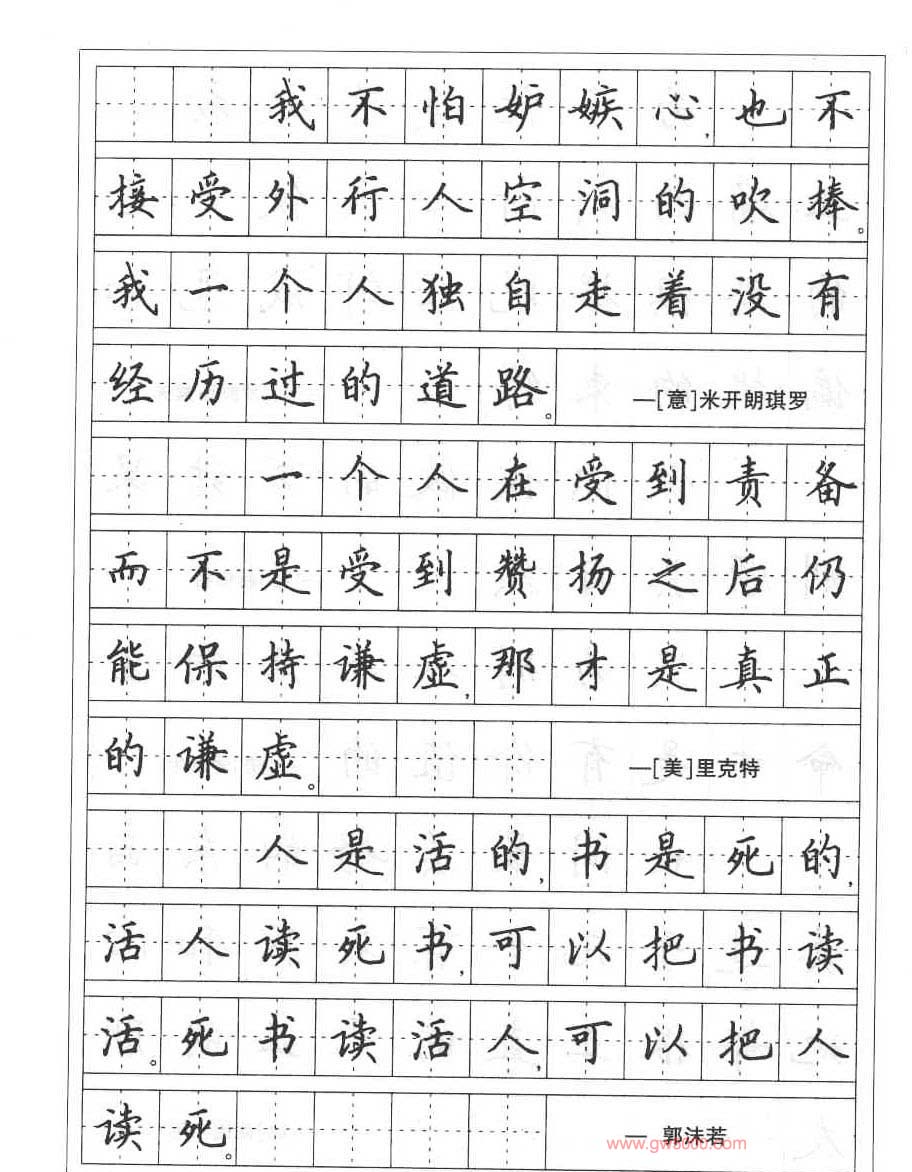 我不怕妒嫉心,也不
接受外行人空洞的吹捧。
我一个人独自走着没有
经历过的道路。 —[意]米开朗琪罗
一个人在受到责备
而不是受到赞扬之后仍
能保持谦虚,那才是真正
的谦虚。 —[美]里克特
人是活的,书是死的,
活人读死书,可以把书读
活。死书读活人,可以把人
读死。 — 郭沫若
www.gw5000.com